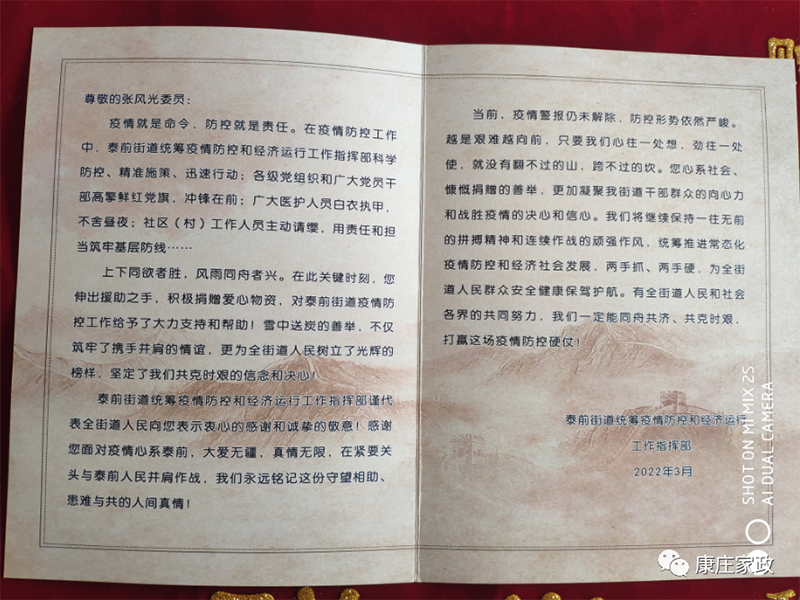 尊敬的张风光委员：
疫情就是命令，防控就是责任。在疫情防控工作
中，泰前街道统筹疫情防控和经济运行工作指挥部科学
防控、精准施策、迅速行动；各级党组织和广大党员干
部高擎鲜红党旗，冲锋在前；广大医护人员白衣执甲，
不舍昼夜；社区（村）工作人员主动请缨，用责任和担
当筑牢基层防线……
上下同欲者胜，风雨同舟者兴。在此关键时刻，您
伸出援助之手，积极捐赠爱心物资，对泰前街道疫情防
控工作给予了大力支持和帮助！雪中送炭的善举，不仅
筑牢了携手并肩的情谊，更为全街道人民树立了光辉的
榜样，坚定了我们共克时艰的信念和决心！
泰前街道统筹疫情防控和经济运行工作指挥部谨代
表全街道人民向您表示衷心的感谢和诚挚的敬意！感谢
您面对疫情心系泰前，大爱无疆，真情无限，在紧要关
头与泰前人民并肩作战，我们永远铭记这份守望相助、
患难与共的人间真情！
当前，疫情警报仍未解除，防控形势依然严峻。
越是艰难越向前，只要我们心往一处想，劲往一处
使，就没有翻不过的山，跨不过的坎。您心系社会、
慷慨捐赠的善举，更加凝聚我街道干部群众的向心力
和战胜疫情的决心和信心。我们将继续保持一往无前
的拼搏精神和连续作战的顽强作风，统筹推进常态化
疫情防控和经济社会发展，两手抓、两手硬，为全街
道人民群众安全健康保驾护航。有全街道人民和社会
各界的共同努力，我们一定能同舟共济、共克时艰，
打赢这场疫情防控硬仗！
泰前街道统筹疫情防控和经济运行
工作指挥部
2022年3月
SHOT ON MI MIX 2S
AI DUAL CAMERA
康庄家政